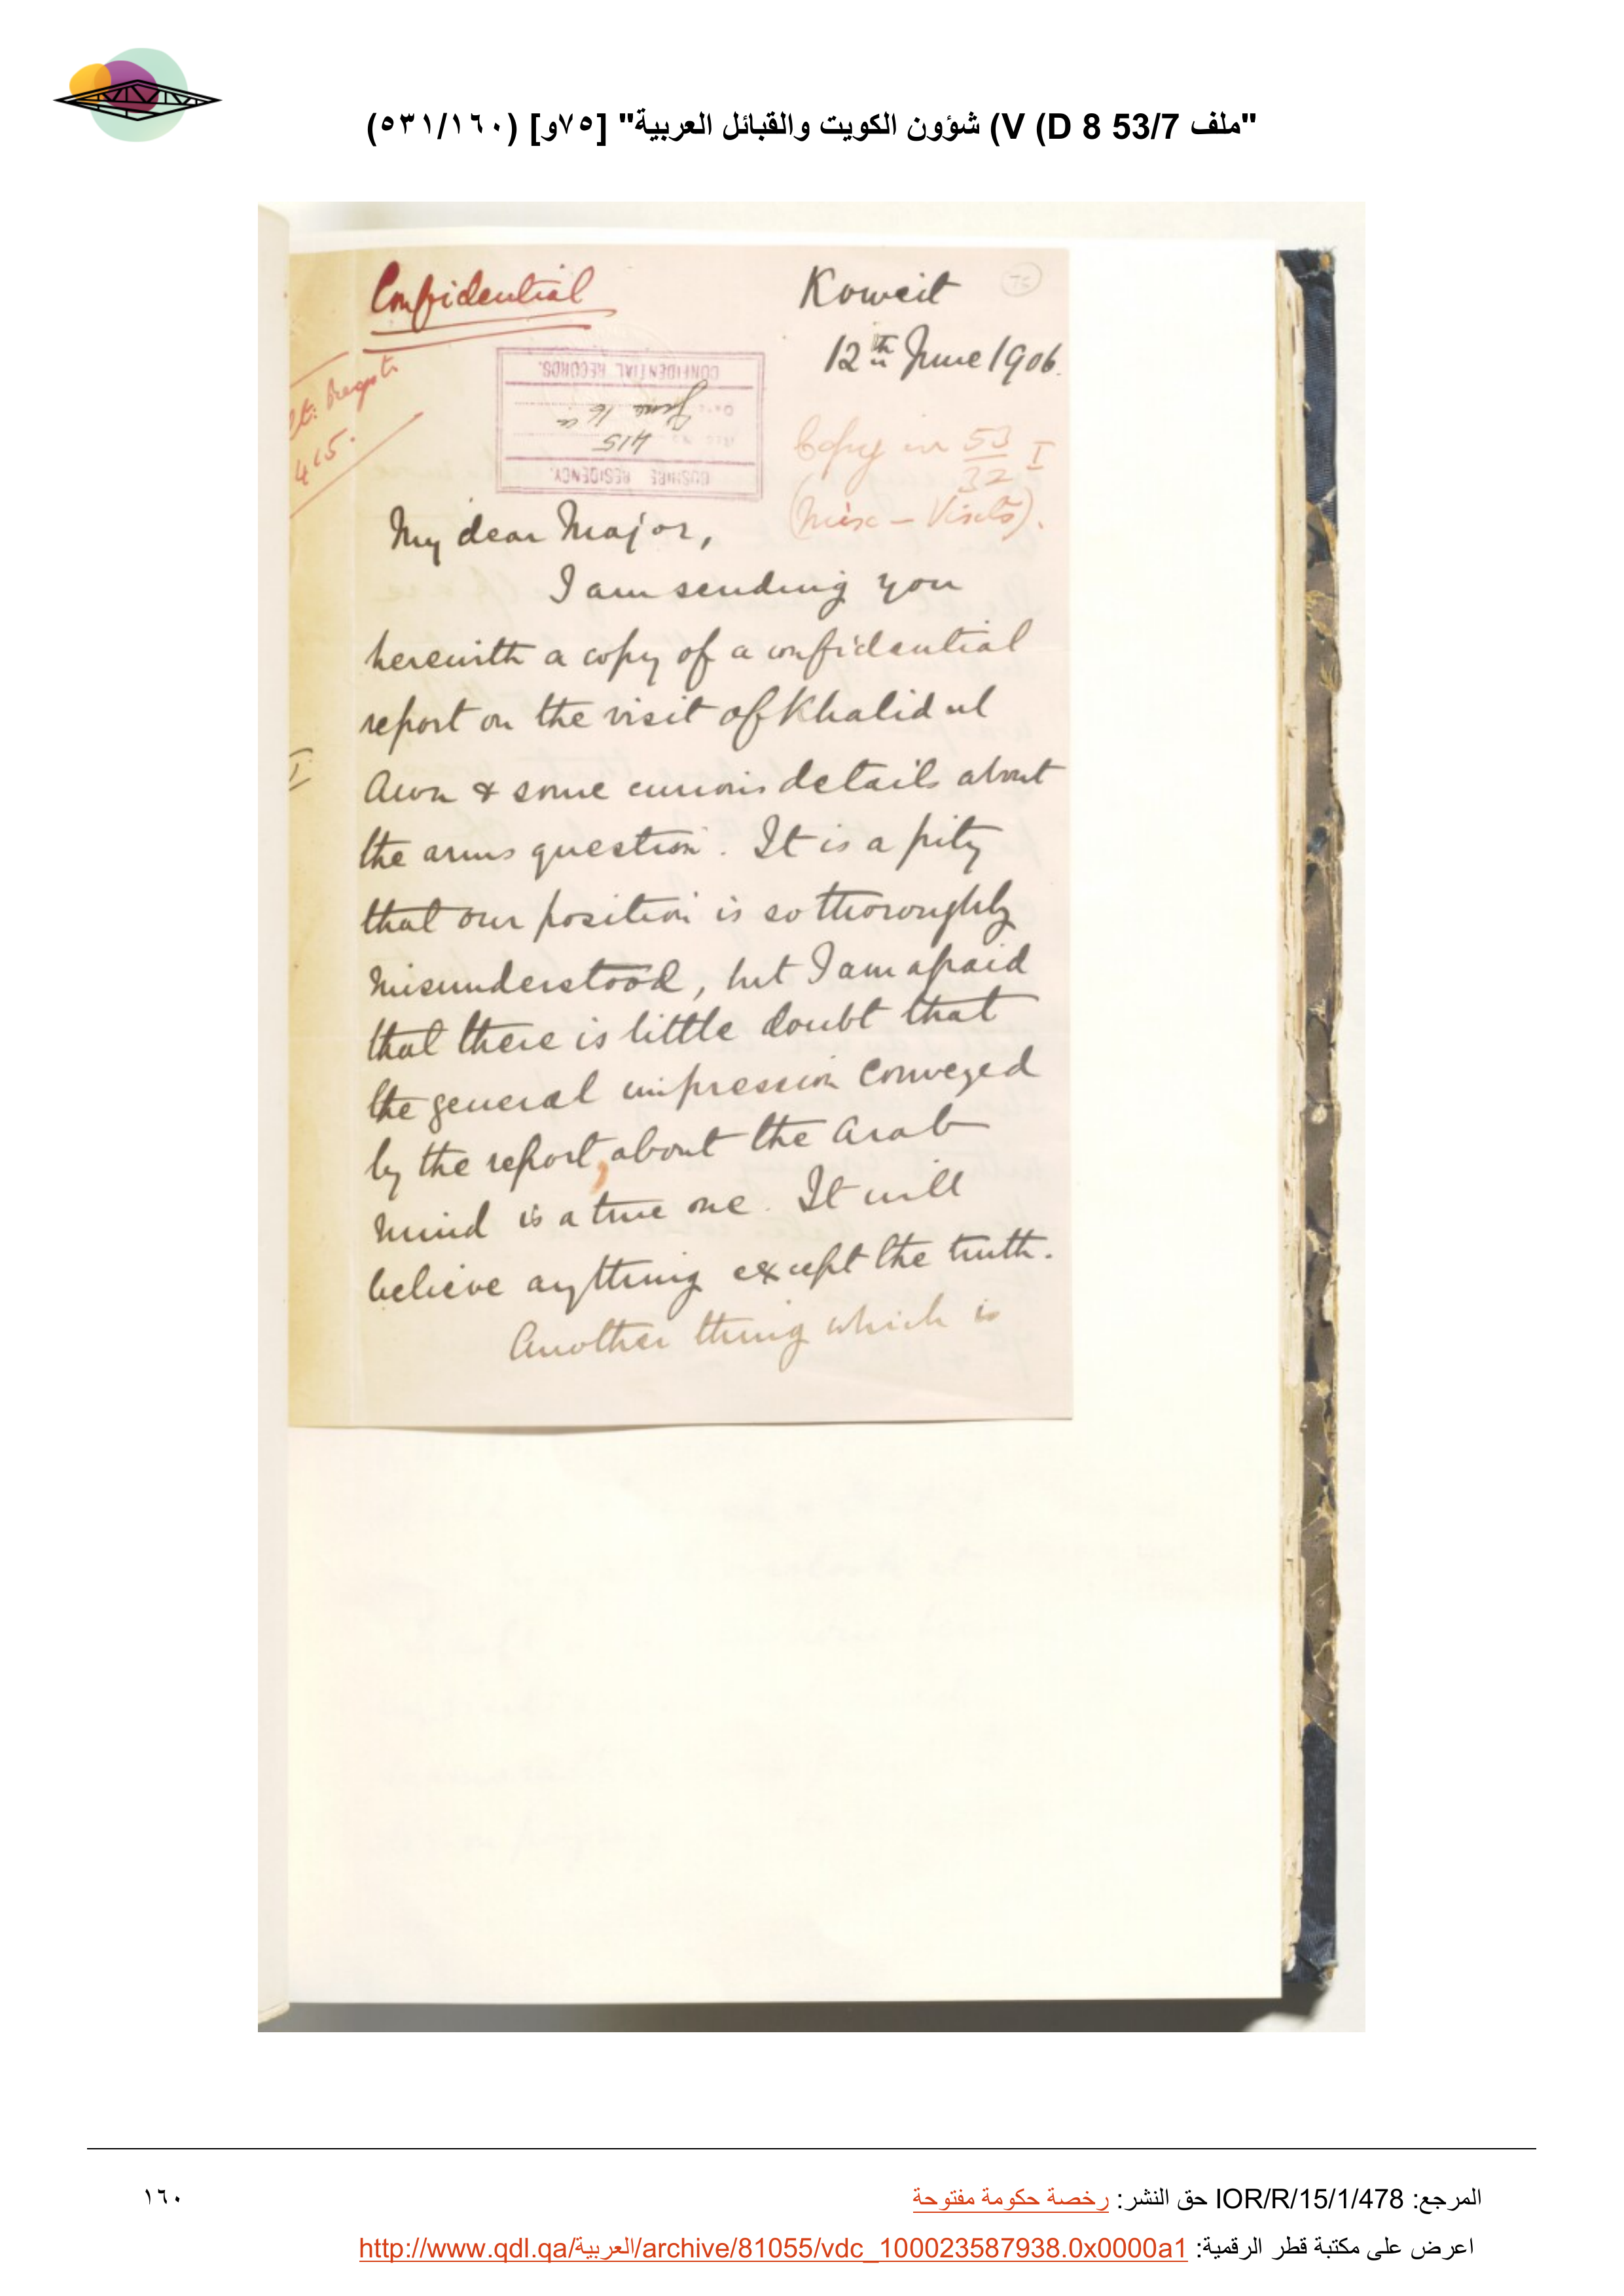 "ملف 53/7 V (D 8) شؤون الكويت والقبائل العربية" [٧٥و] (٥٣١/١٦٠)
Confidential
Koweit
12th June 1906.
CONFIDENTIAL RECORDS.
June
415
BUSHIRE RESIDENCY.
415.
Copy in 53/32 I
(Misc – Visits).
My dear Major,
I am sending you
herewith a copy of a confidential
report on the visit of Khalid ul
Awn & some curious details about
the arms question. It is a pity
that our position is so thoroughly
misunderstood, but I am afraid
that there is little doubt that
the general impression conveyed
by the report, about the Arab
mind is a true one. It will
believe anything except the truth.
Another thing which is
المرجع: IOR/R/15/1/478 حق النشر: رخصة حكومة مفتوحة
١٦٠
اعرض على مكتبة قطر الرقمية: http://www.qdl.qa/العربية/archive/81055/vdc_100023587938.0x0000a1